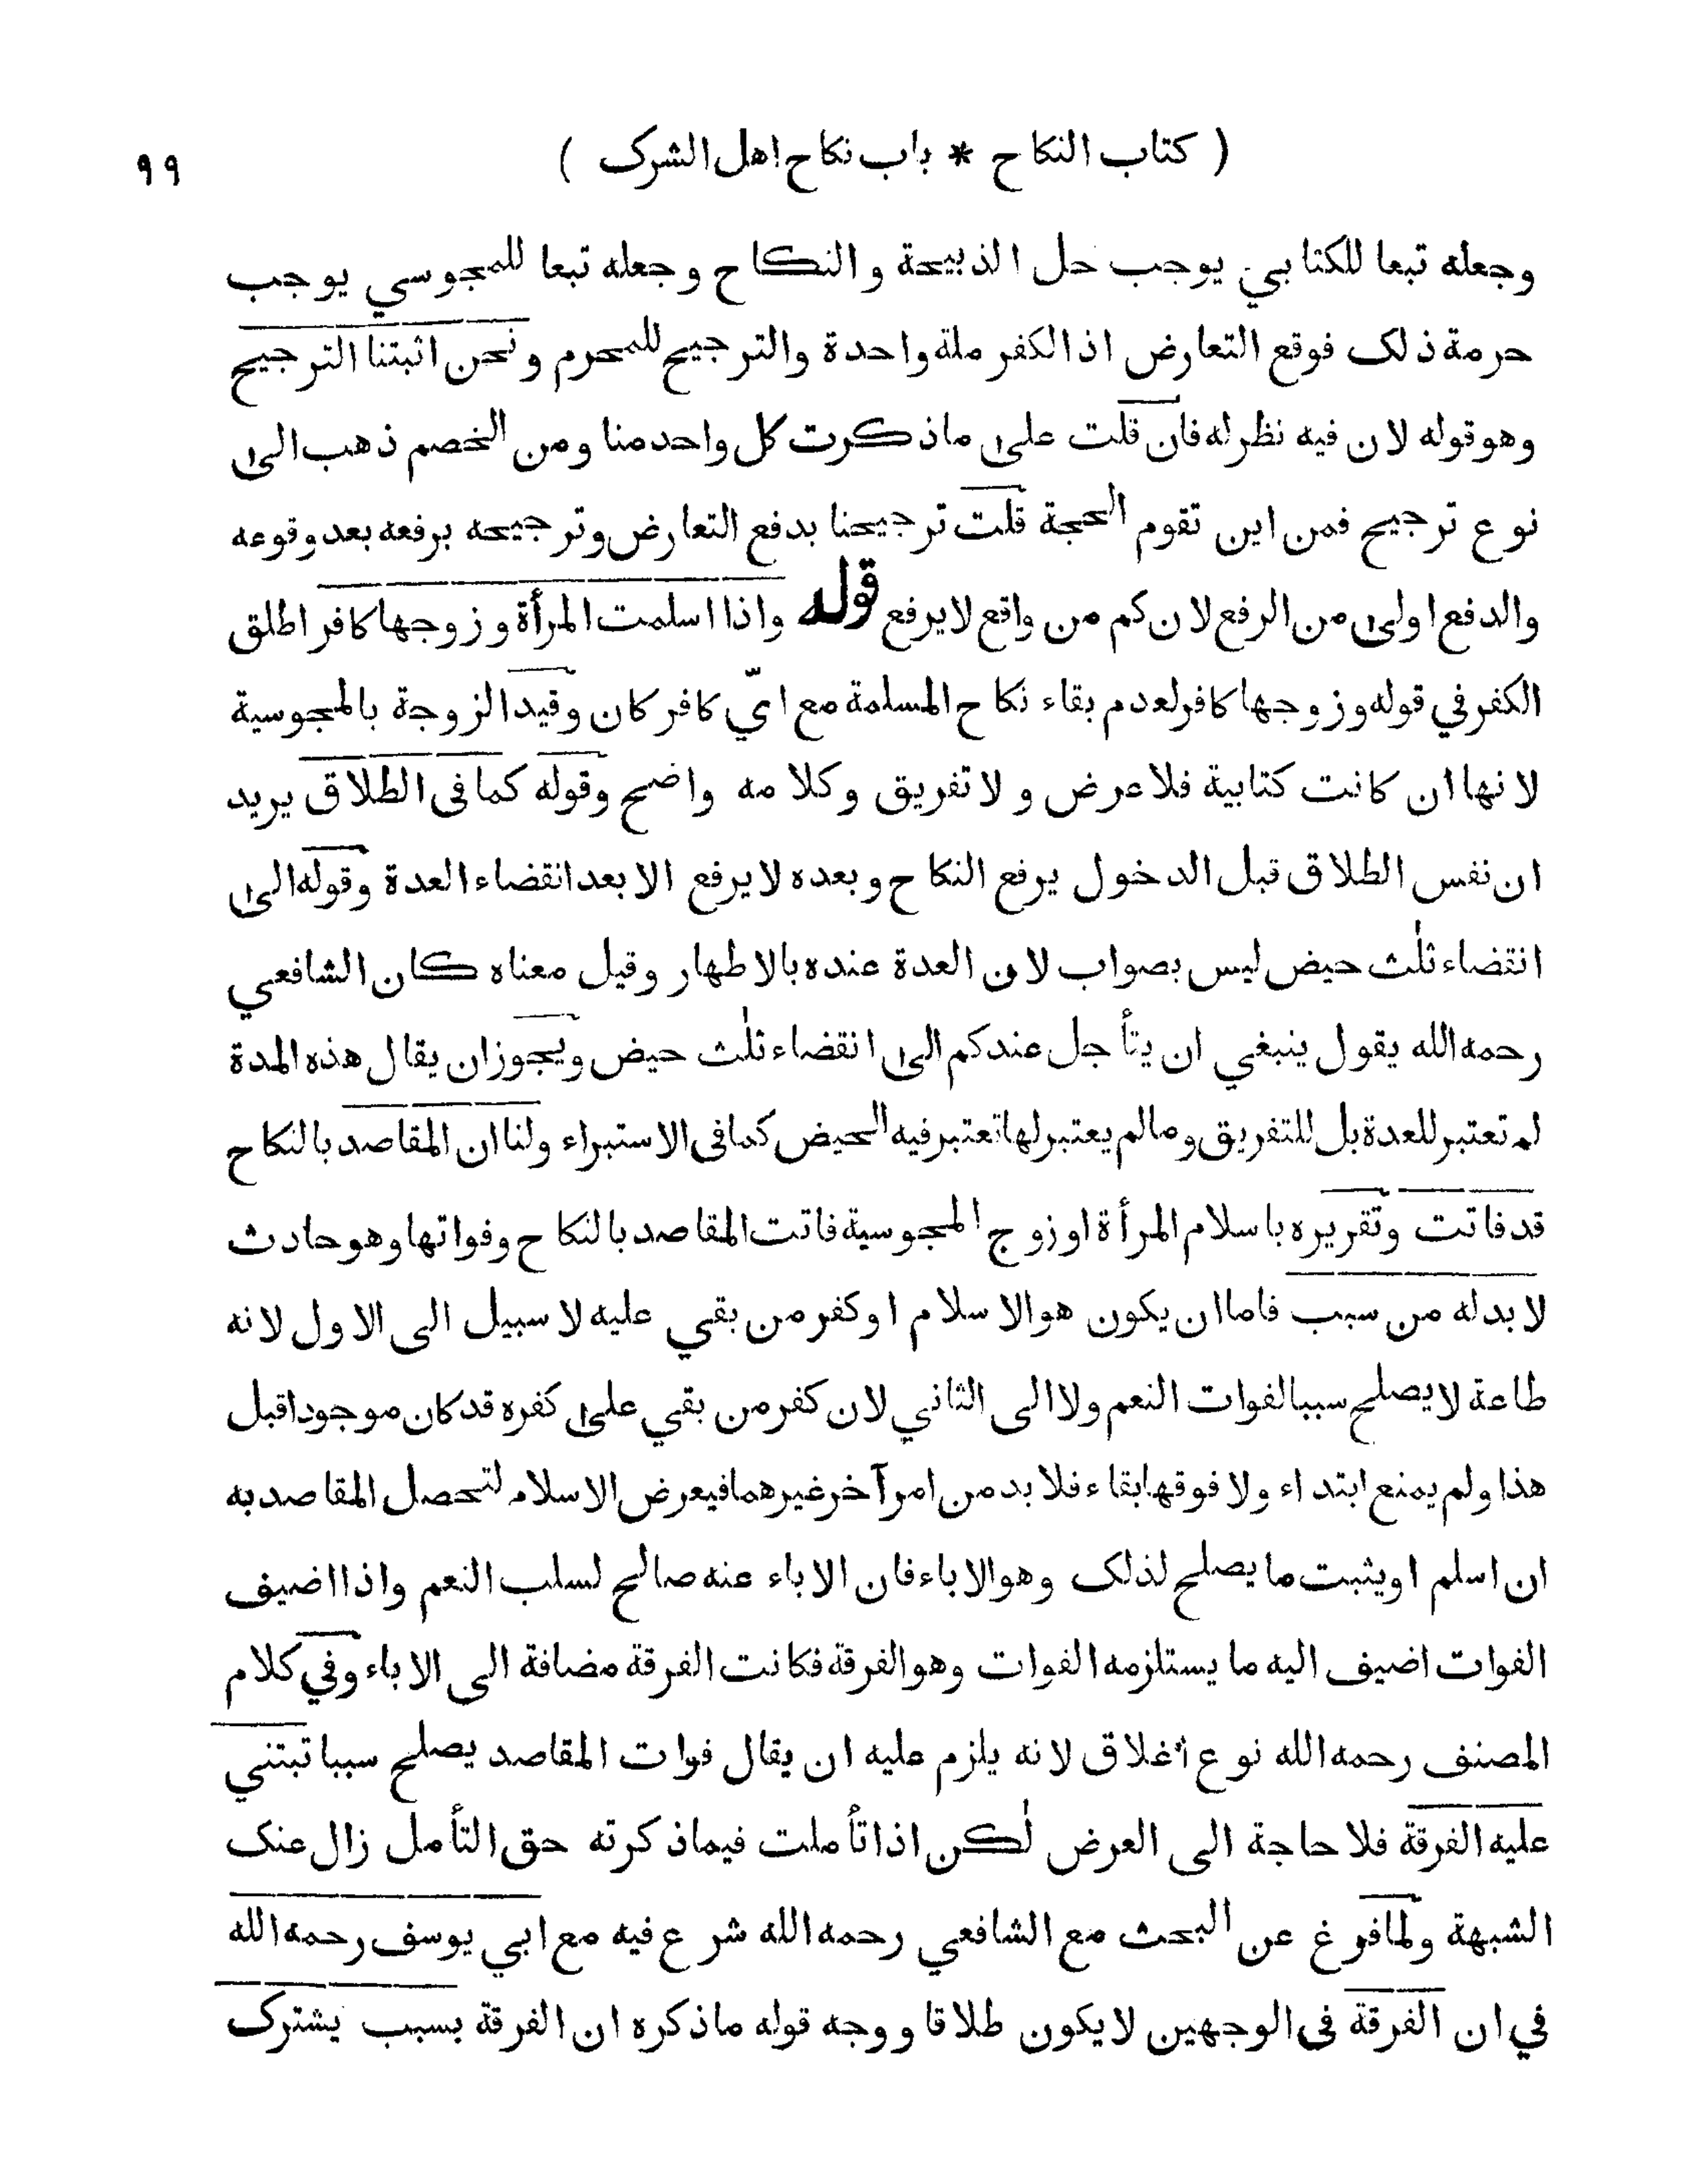 ( كتاب النكاح * باب نكاح اهل الشرك ) ٩٩
وجعله تبعا للكتابي يوجب حل الذبيحة والنكاح وجعله تبعا للمجوسي يوجب
حرمة ذلك فوقع التعارض اذ الكفر ملة واحدة والترجيح للمحرم ونحن اثبتنا الترجيح
وهو قوله لان فيه نظر له فان قلت على ما ذكرت كل واحد منا ومن الخصم ذهب الى
نوع ترجيح فمن اين تقوم الحجة قلت ترجيحنا بدفع التعارض وترجيحه برفعه بعد وقوعه
والدفع اولى من الرفع لان كم من واقع لا يرفع قوله واذا اسلمت المرأة وزوجها كافر اطلق
الكفر في قوله وزوجها كافر لعدم بقاء نكاح المسلمة مع ايّ كافر كان وقيد الزوجة بالمجوسية
لانها ان كانت كتابية فلا عرض ولا تفريق وكلامه واضح وقوله كما في الطلاق يريد
ان نفس الطلاق قبل الدخول يرفع النكاح وبعده لا يرفع الا بعد انقضاء العدة وقوله الى
انقضاء ثلٰث حيض ليس بصواب لان العدة عنده بالاطهار وقيل معناه كان الشافعي
رحمه الله يقول ينبغي ان يتأجل عندكم الى انقضاء ثلٰث حيض ويجوز ان يقال هذه المدة
لم تعتبر للعدة بل للتفريق وما لم يعتبر لها تعتبر فيه الحيض كما في الاستبراء ولنا ان المقاصد بالنكاح
قد فاتت وتقريره باسلام المرأة او زوج المجوسية فاتت المقاصد بالنكاح وفواتها وهو حادث
لا بد له من سبب فاما ان يكون هو الاسلام او كفر من بقي عليه لا سبيل الى الاول لانه
طاعة لا يصلح سببا لفوات النعم ولا الى الثاني لان كفر من بقي على كفره قد كان موجودا قبل
هذا ولم يمنع ابتداء ولا فوقها بقاء فلا بد من امر آخر غيرهما فيعرض الاسلام لتحصل المقاصد به
ان اسلم او يثبت ما يصلح لذلك وهو الاباء فان الاباء عنه صالح لسلب النعم واذا اضيف
الفوات اضيف اليه ما يستلزمه الفوات وهو الفرقة فكانت الفرقة مضافة الى الاباء وفي كلام
المصنف رحمه الله نوع اغلاق لانه يلزم عليه ان يقال فوات المقاصد يصلح سببا تبتني
عليه الفرقة فلا حاجة الى العرض لٰكن اذا تأملت فيما ذكرته حق التأمل زال عنك
الشبهة ولما فرغ عن البحث مع الشافعي رحمه الله شرع فيه مع ابي يوسف رحمه الله
في ان الفرقة في الوجهين لا يكون طلاقا ووجه قوله ما ذكره ان الفرقة بسبب يشترك